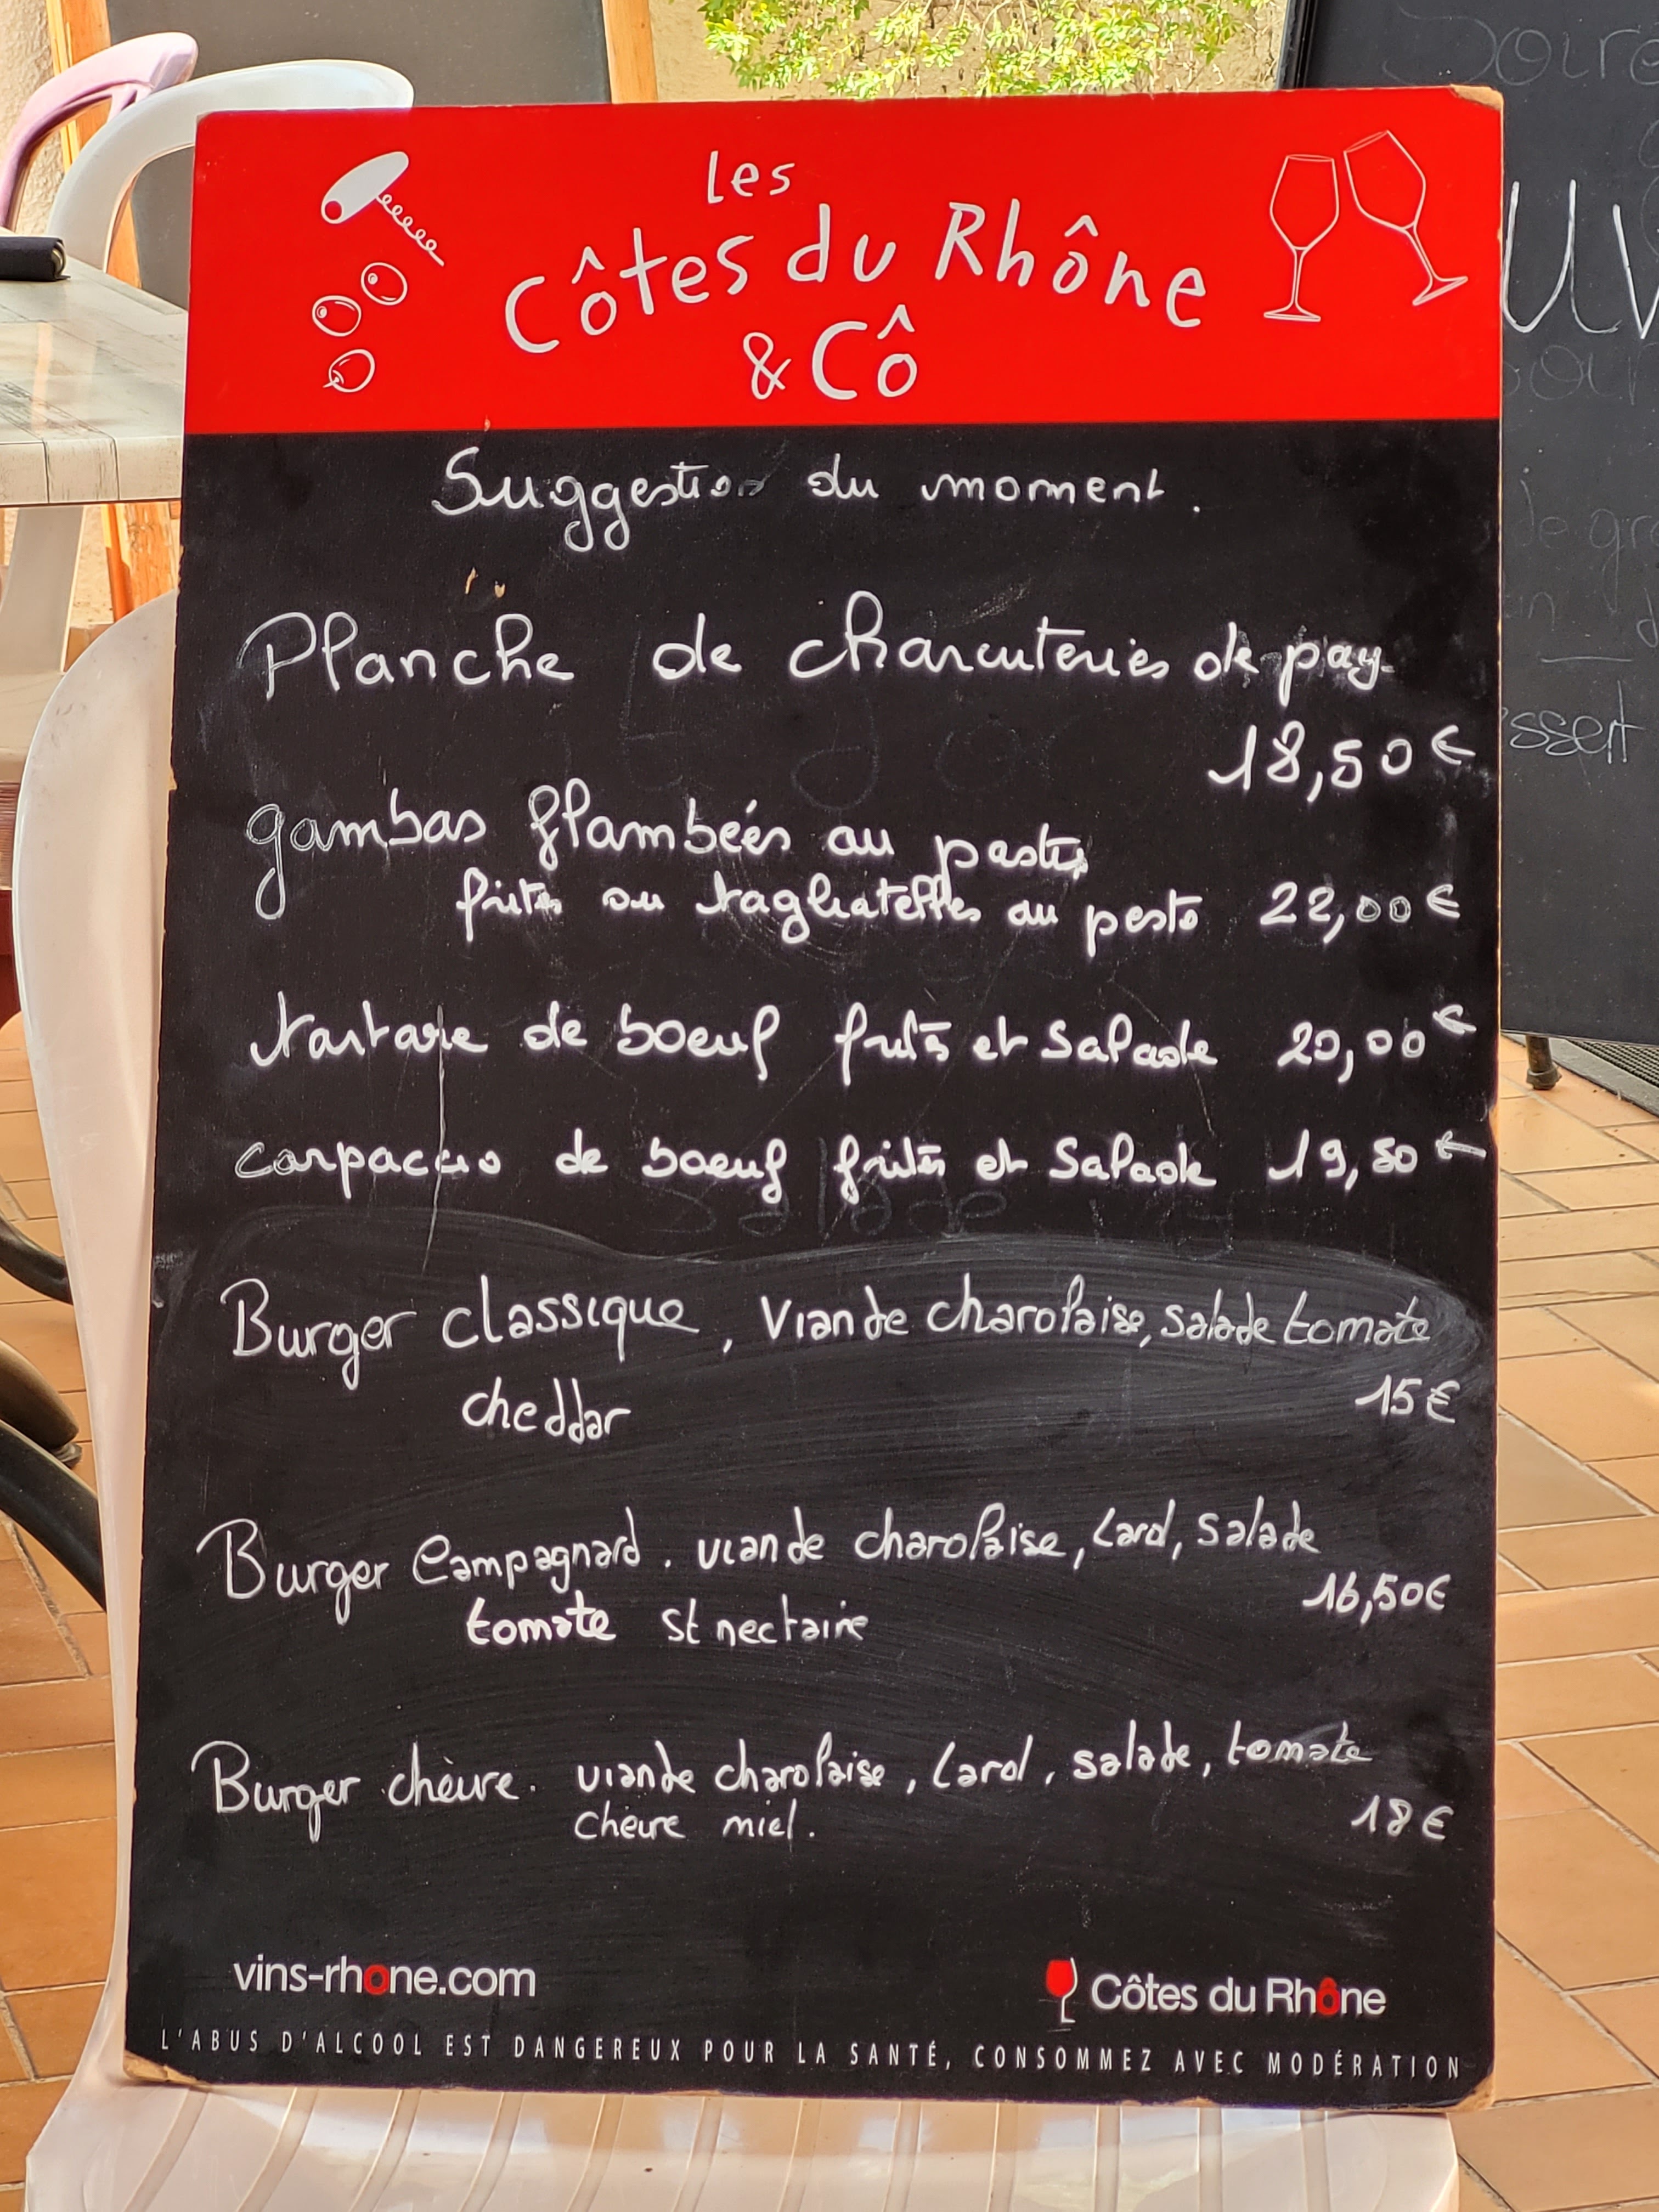 les
Côtes du Rhône
& Cô
Suggestion du moment.
Planche de charcuteries de pay
18,50€
gambas flambées au pastis
frites ou tagliatelles au pesto 22,00€
tartare de boeuf frites et Salade 20,00€
carpaccio de boeuf frites et Salade 19,50€
Burger classique, viande charolaise, salade tomate
cheddar 15€
Burger Campagnard. viande charolaise, Lard, salade
16,50€
tomate st nectaire
Burger chèvre. viande charolaise, Lard, salade, tomate
chèvre miel. 18€
vins-rhone.com
Côtes du Rhône
L'ABUS D'ALCOOL EST DANGEREUX POUR LA SANTÉ, CONSOMMEZ AVEC MODÉRATION